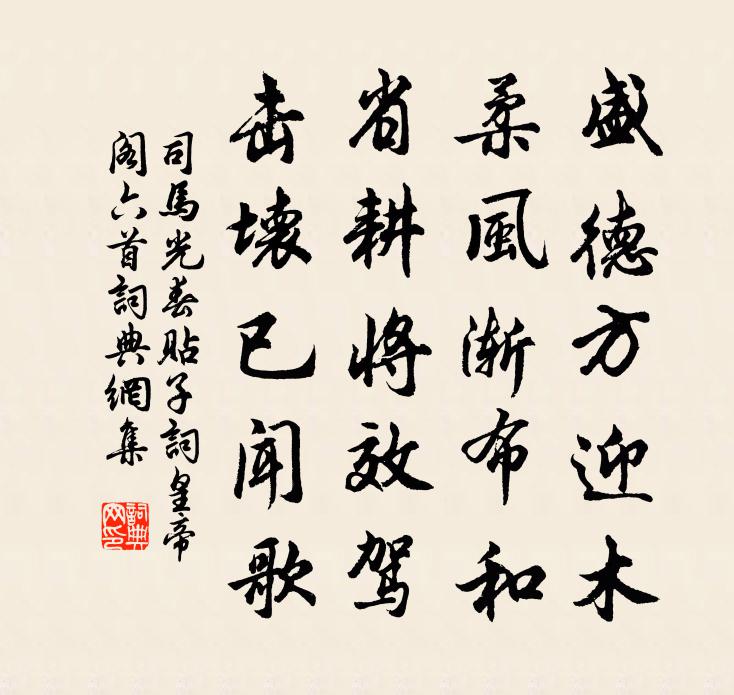 盛德方迎木
柔風漸布和
省耕將效駕
击壤已聞歌
司馬光春贴子詞皇帝
阁六首詞典網集
詞典
网印